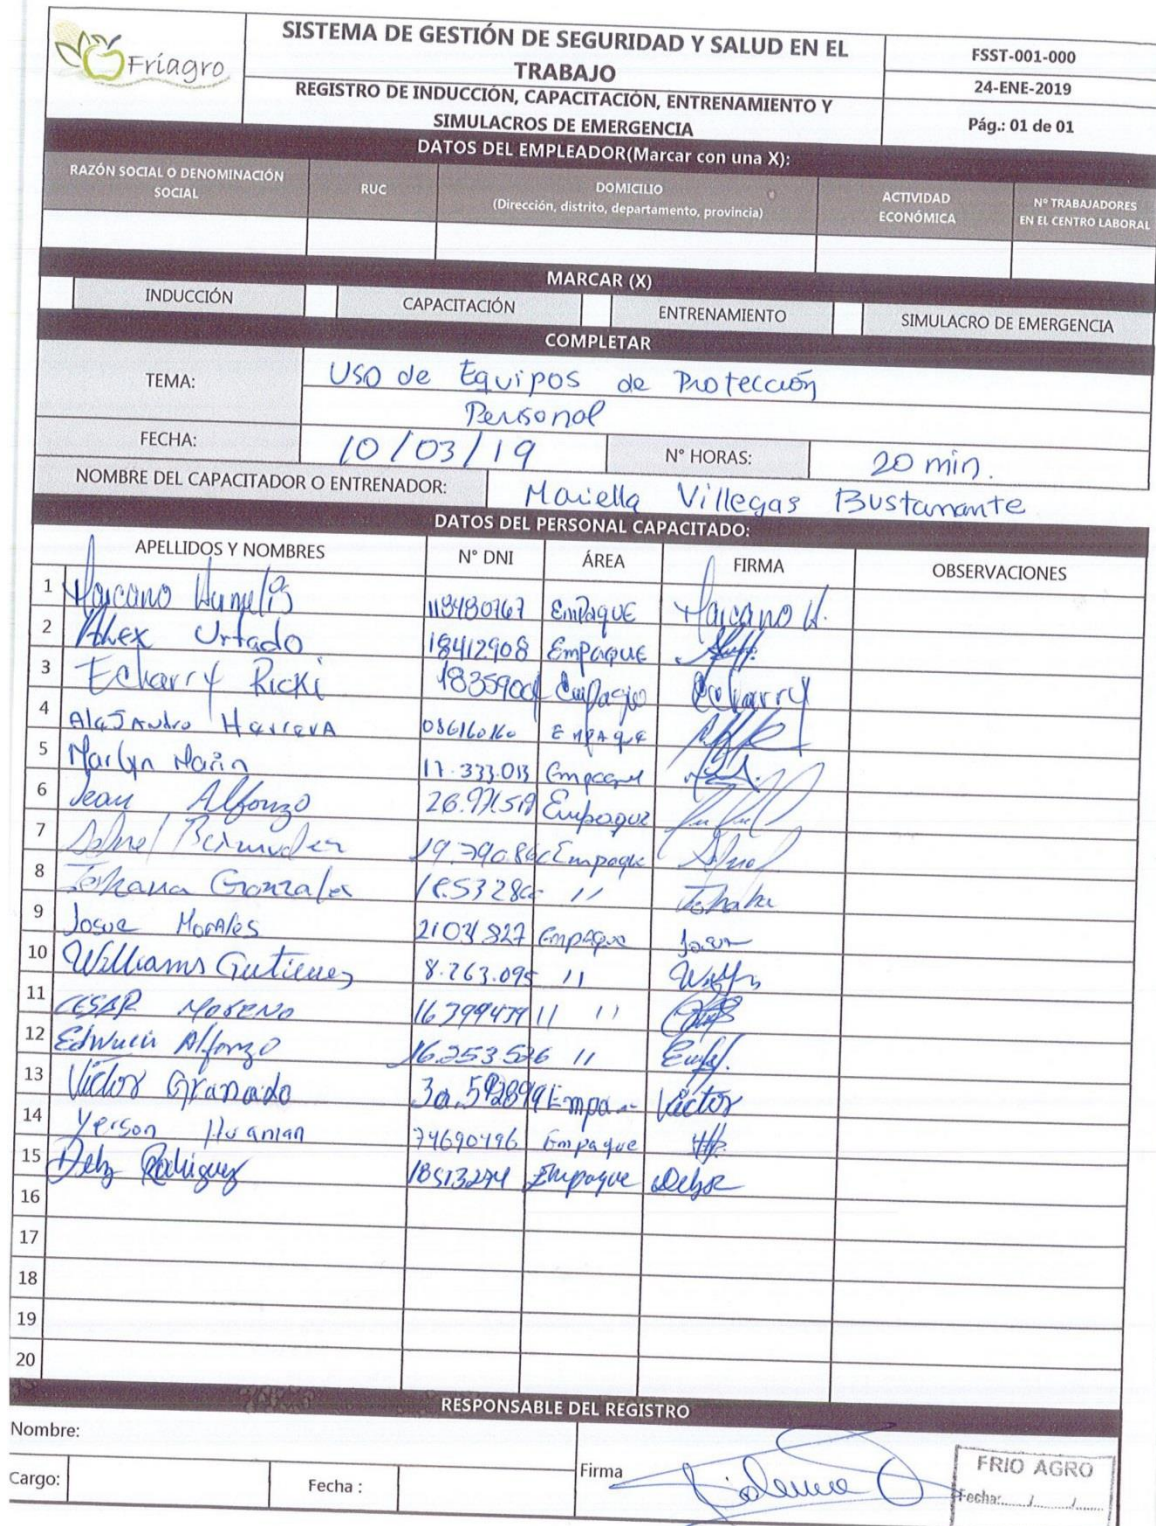 Friagro
SISTEMA DE GESTIÓN DE SEGURIDAD Y SALUD EN EL
TRABAJO
REGISTRO DE INDUCCIÓN, CAPACITACIÓN, ENTRENAMIENTO Y
SIMULACROS DE EMERGENCIA
FSST-001-000
24-ENE-2019
Pág.: 01 de 01
DATOS DEL EMPLEADOR(Marcar con una X):
RAZÓN SOCIAL O DENOMINACIÓN
SOCIAL
RUC
DOMICILIO
(Dirección, distrito, departamento, provincia)
ACTIVIDAD
ECONÓMICA
Nº TRABAJADORES
EN EL CENTRO LABORAL
MARCAR (X)
INDUCCIÓN CAPACITACIÓN ENTRENAMIENTO SIMULACRO DE EMERGENCIA
COMPLETAR
TEMA: Uso de Equipos de Protección
Personal
FECHA: 10/03/19 N° HORAS: 20 min.
NOMBRE DEL CAPACITADOR O ENTRENADOR: Mariella Villegas Bustamante
DATOS DEL PERSONAL CAPACITADO:
APELLIDOS Y NOMBRES N° DNI ÁREA FIRMA OBSERVACIONES
1 Marcano 118480767 Empaque Marcano H.
2 Alex Urtado 18412908 Empaque
3 Echarry Ricki Echarry
4 Alejandro Herrera Empaque
5 Marlyn 17.333.013
6 Jean Alfonzo Empaque
7 Empaque
8 Gonzalez //
9 Josue Morales Empaque
10 Williams Gutierrez 8.263.095 //
11 CESAR MORENO // //
12 Alfonzo 16.253.526 //
13 Victor Granado Victor
14 Yerson Huaman 74690496 Empaque
15 Rodriguez Empaque
16
17
18
19
20
RESPONSABLE DEL REGISTRO
Nombre:
Cargo: Fecha : Firma
FRIO AGRO
Fecha:....../....../......